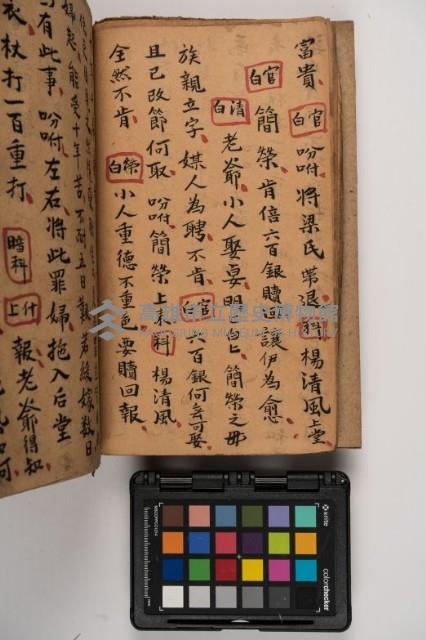 富貴、官白 吩咐將梁氏帶退、科 楊清風上堂
官白 簡榮、肯倍六百銀贖 讓伊為愈、
清白 老爺、小人娶妻明白、簡榮之毋
族親立字、媒人為聘、不肯、官白 六百銀何妻可娶
且已改節何取、吩咐簡榮上來、科 楊清風
全然不肯、榮白 小人重德不重色、要贖回報、
婦起能受十年苦不耐五日 若 嫁數日
有此事、吩咐左右將此罪婦、拖入后堂
衣杖打一百重打、暗科 什上 報老爺得知
高雄市立歷史博物館
KAOHSIUNG MUSEUM OF HISTORY
x-rite
colorchecker